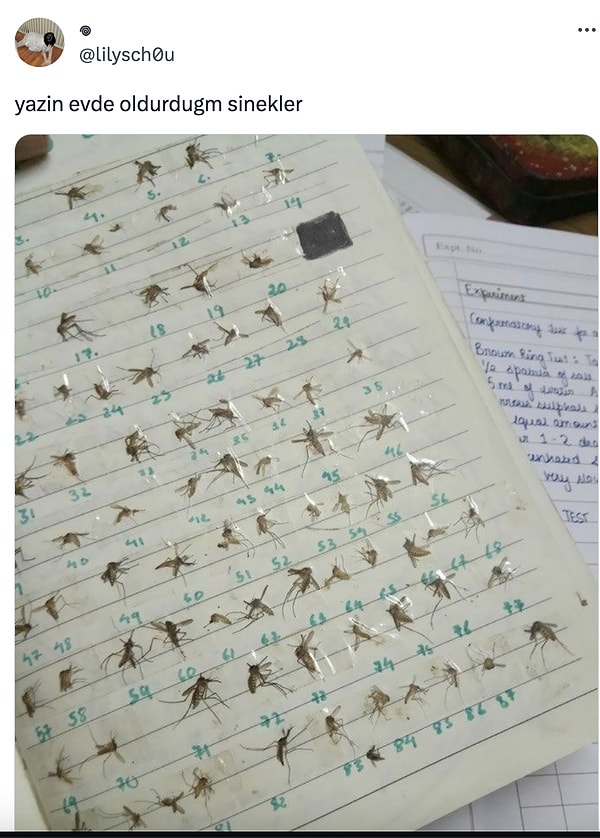 @lilysch0u
yazin evde oldurdugm sinekler
3. 4. 5. 6. 7.
10. 11 12 13 14
17. 18 19 20
22 23 24 25 26 27 28 29
31 32 33 34 35 36 37 35
40 41 42 43 44 45 46
47 48 49 50 51 52 53 54 55 56
57 58 59 60 61 62 63 64 65 66 67 68
69 70 71 72 73 74 75 76 77
81 82 83 84 85 86 87
Expt. No.
Experiment
Confirmatory test for
Brown Ring Test : To
1/2 spatula of salt
5 ml of water. A
rrous sulphate
equal amount
1-2 dro
very slow
TEST